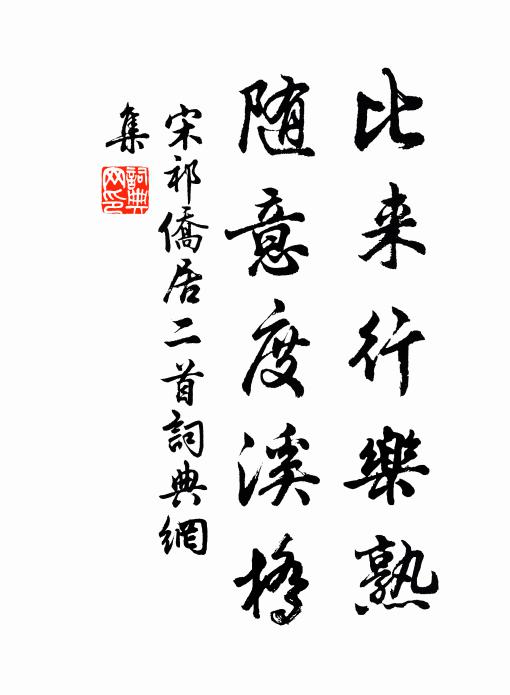 比来行樂熟
随意度溪橋
宋祁僑居二首詞典網
集
詞典
网印